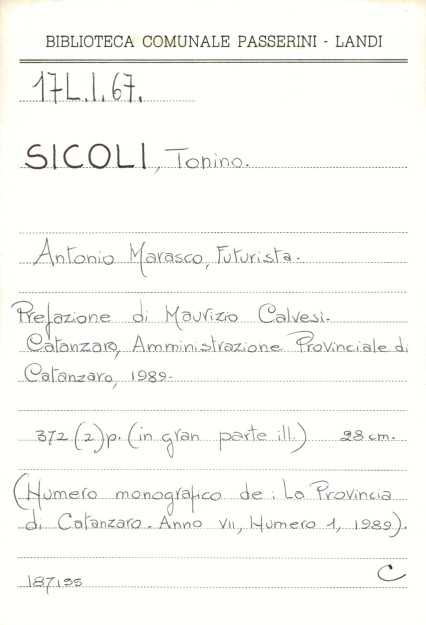 BIBLIOTECA COMUNALE PASSERINI - LANDI
17L.I.67.
SICOLI, Tonino.
Antonio Marasco, Futurista.
Prefazione di Maurizio Calvesi.
Catanzaro, Amministrazione Provinciale di
Catanzaro, 1989.
372 (2) p. (in gran parte ill.) 28 cm.
(Numero monografico de: La Provincia
di Catanzaro. Anno VII, Numero 1, 1989).
187195
C